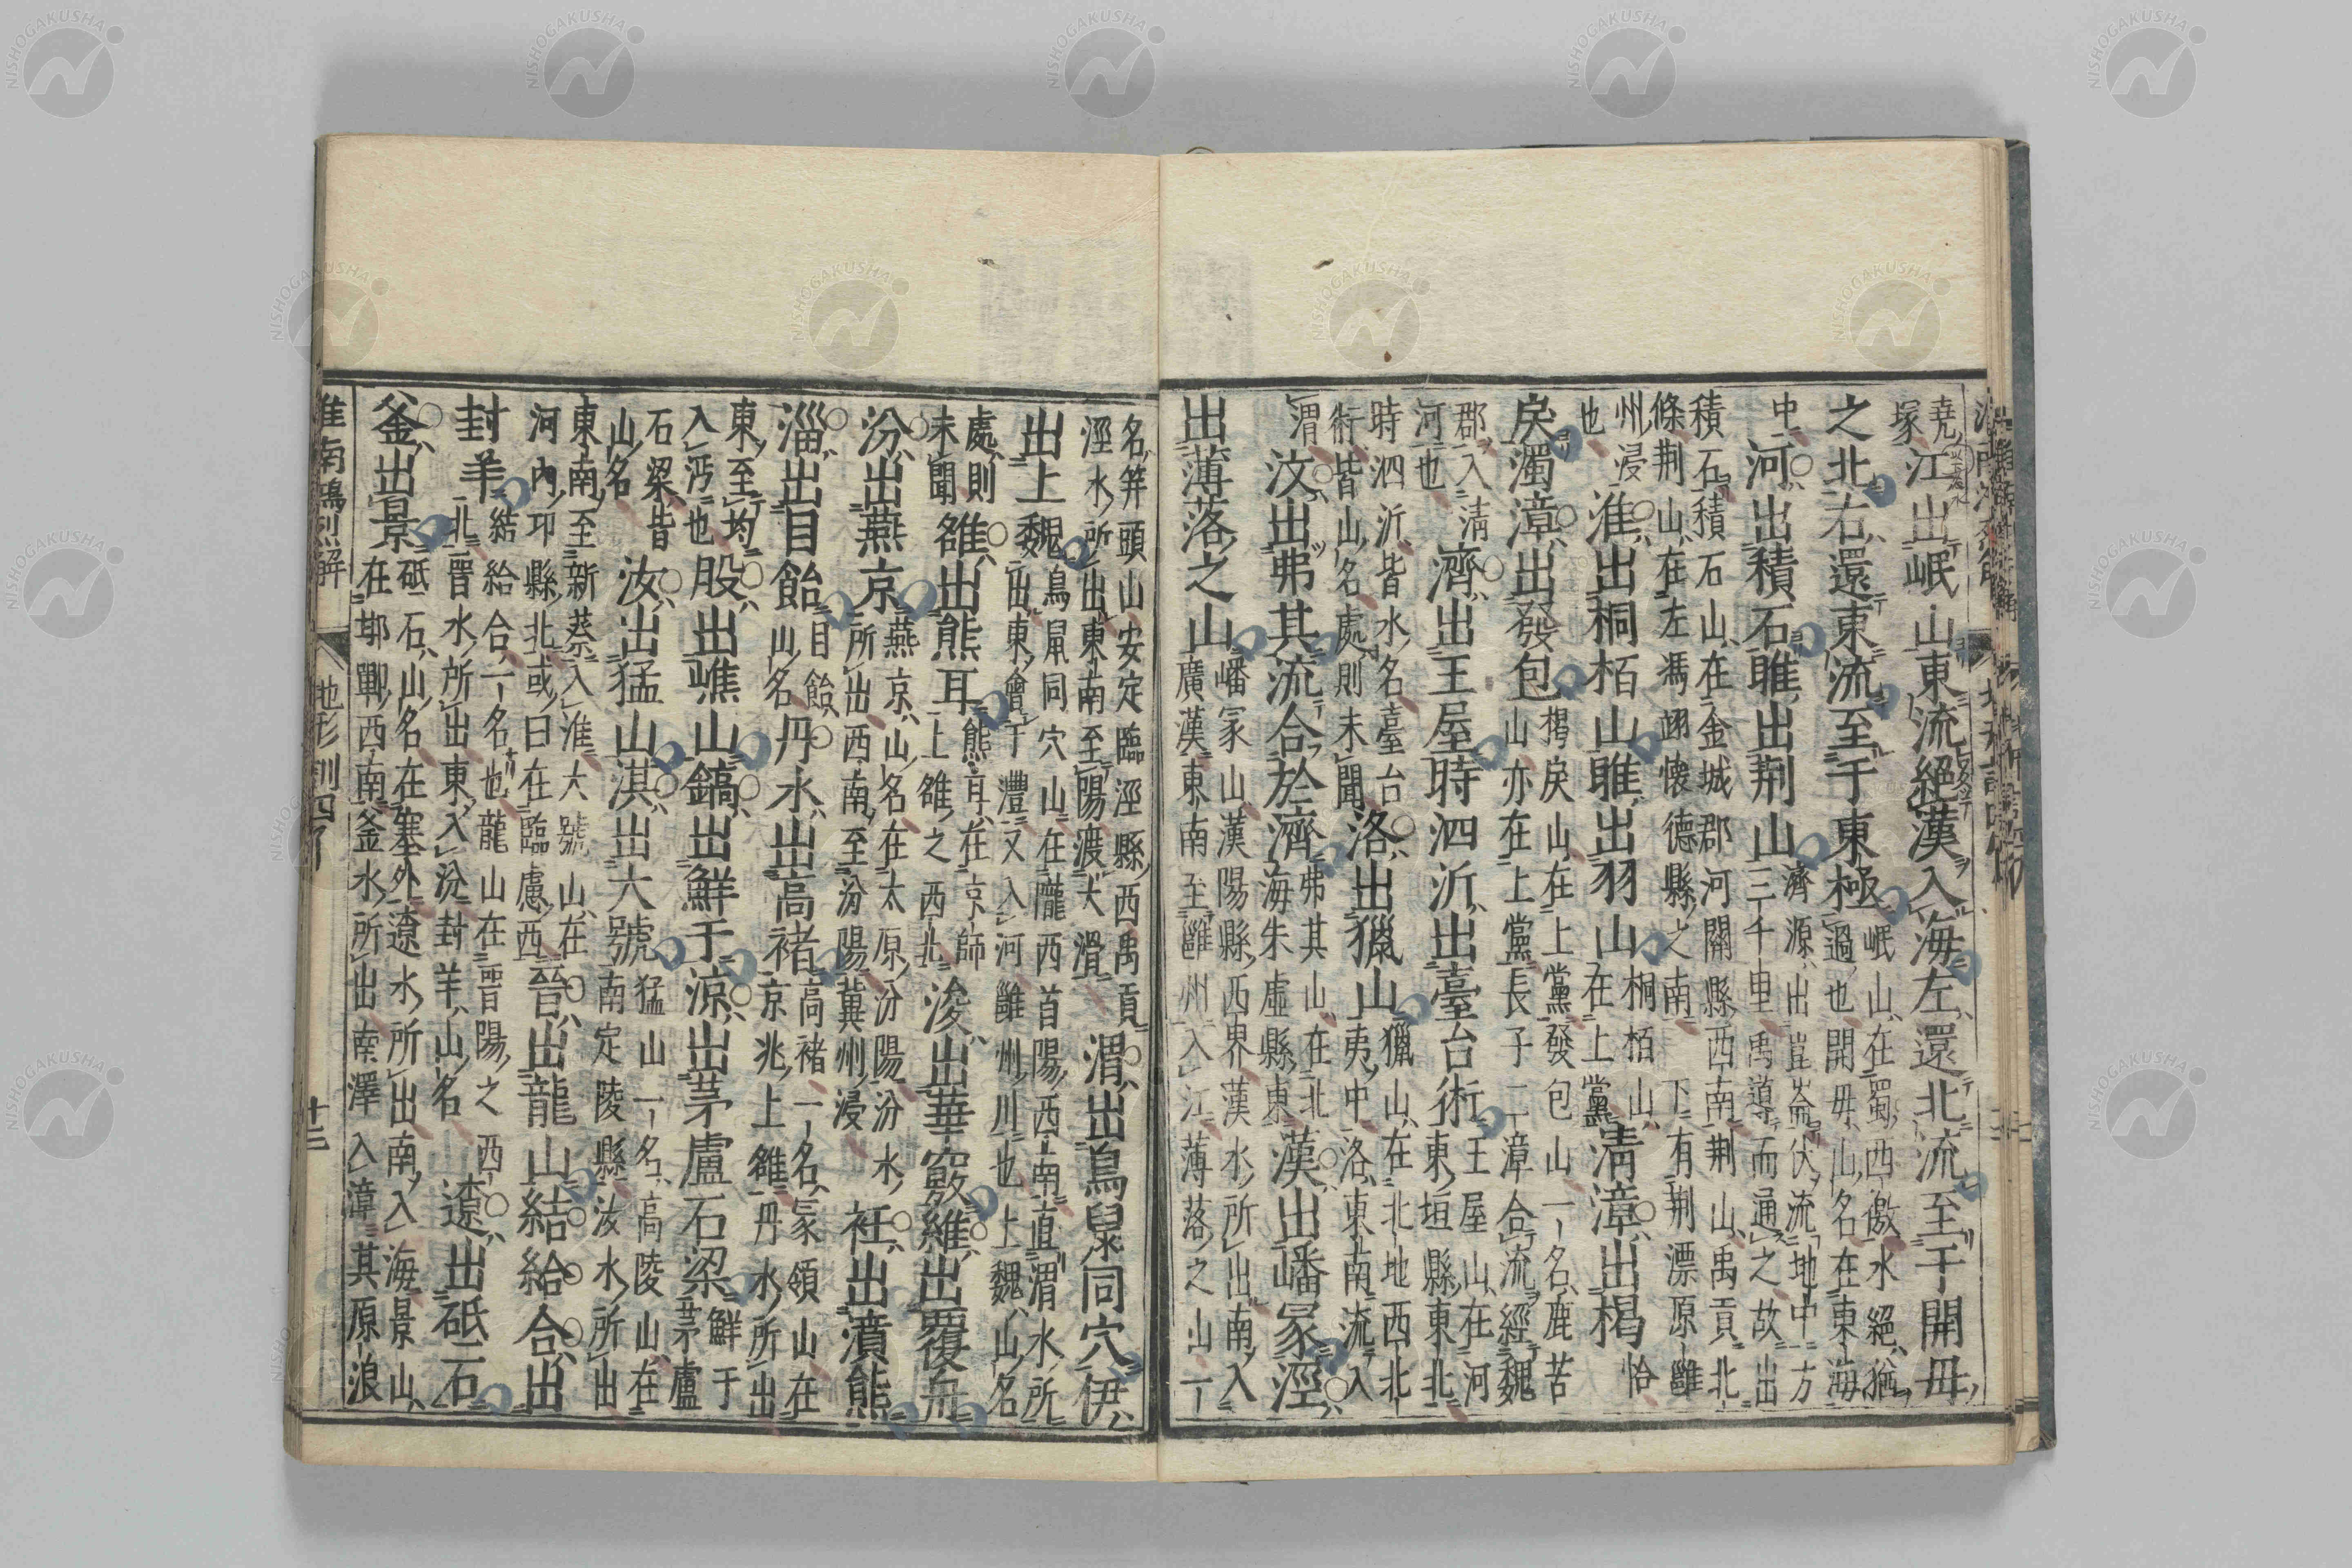 堯
塚
江出岷山東流絕漢入海左還北流至于開毋
之北右還東流至于東極
岷山在蜀西徼水絕猶
過也開毋山名在東海
中
河出積石睢出荆山
濟源出崑崙伏流地中方
三千里禹導而通之故出
積石積石山在金城郡河關縣西南荆山禹貢北
條荆山在左馮翊懷德縣之南下有荆漂原雝
州浸
也
淮出桐栢山睢出羽山
桐栢山
在上黨
清漳出楬
恰
戾濁漳出發包
楬戾山在上黨發包山一名鹿苦
山亦在上黨長子二漳合流經魏
郡入清
河也
濟出王屋時泗沂出臺台術
王屋山在河
東垣縣東北
時泗沂皆水名臺台
術皆山名處則未聞
洛出獵山
獵山在北地西北
夷中洛東南流入
渭
汶出弗其流合於濟
弗其山在北
海朱虛縣東
漢出嶓冢涇
出薄落之山
嶓冢山漢陽縣西界漢水所出南入
廣漢東南至雝州入江薄落之山一
名笄頭山安定臨涇縣西禹貢
涇水所出東南至陽渡犬滑
渭出鳥鼠同穴伊
出上魏
鳥鼠同穴山在隴西首陽西南直渭水所
出東會于灃又入河雝州川也上魏山名
處則
未聞
雒出熊耳
熊耳在京師
上雒之西北
浚出華竅維出覆舟
汾出燕京
燕京山名在太原汾陽汾水
所出西南至汾陽冀州浸
衽出濆熊
淄出目飴
目飴
山名
丹水出高褚
高褚一名冢領山在
京兆上雒丹水所出
東至均
入沔也
股出嶕山鎬出鮮于涼出茅盧石梁
鮮于
茅盧
石梁皆
山名
汝出猛山淇出大號
猛山一名高陵山在
南定陵縣汝水所出
東南至新蔡入淮大號山在
河內邛縣北或曰在臨慮西
晉出龍山結給合出
封羊
結給合一名也龍山在晉陽之西
北晉水所出東入汾封羊山名
遼出砥石
釜出景
砥石山名在塞外遼水所出南入海景山
在邯鄲西南釜水所出南澤入漳其原浪
淮南鴻烈解 地形訓四 十三